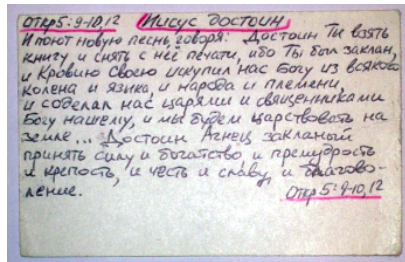 Откр 5:9-10,12 Иисус достоин
И поют новую песнь, говоря: Достоин Ты взять
книгу и снять с неё печати, ибо Ты был заклан,
и Кровию Своею искупил нас Богу из всякого
колена и языка, и народа и племени,
и соделал нас царями и священниками
Богу нашему, и мы будем царствовать на
земле... Достоин Агнец закланый
принять силу и богатство и премудрость
и крепость, и честь и славу, и благово-
ление.
Откр 5:9-10,12